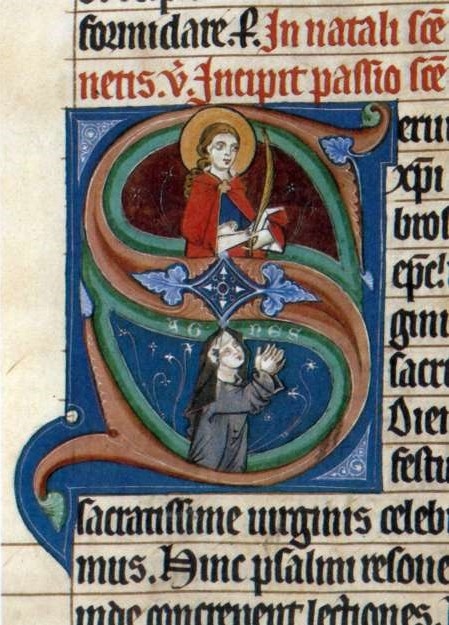 formidare. In natali sce
netis. v. Incipit passio sce
Serui
xpi
bros
epc
gini
sacr
AG NES
Dien
festu
sacratissime uirginis celeb
mus. Hinc psalmi resone
inde concrepent lectiones.